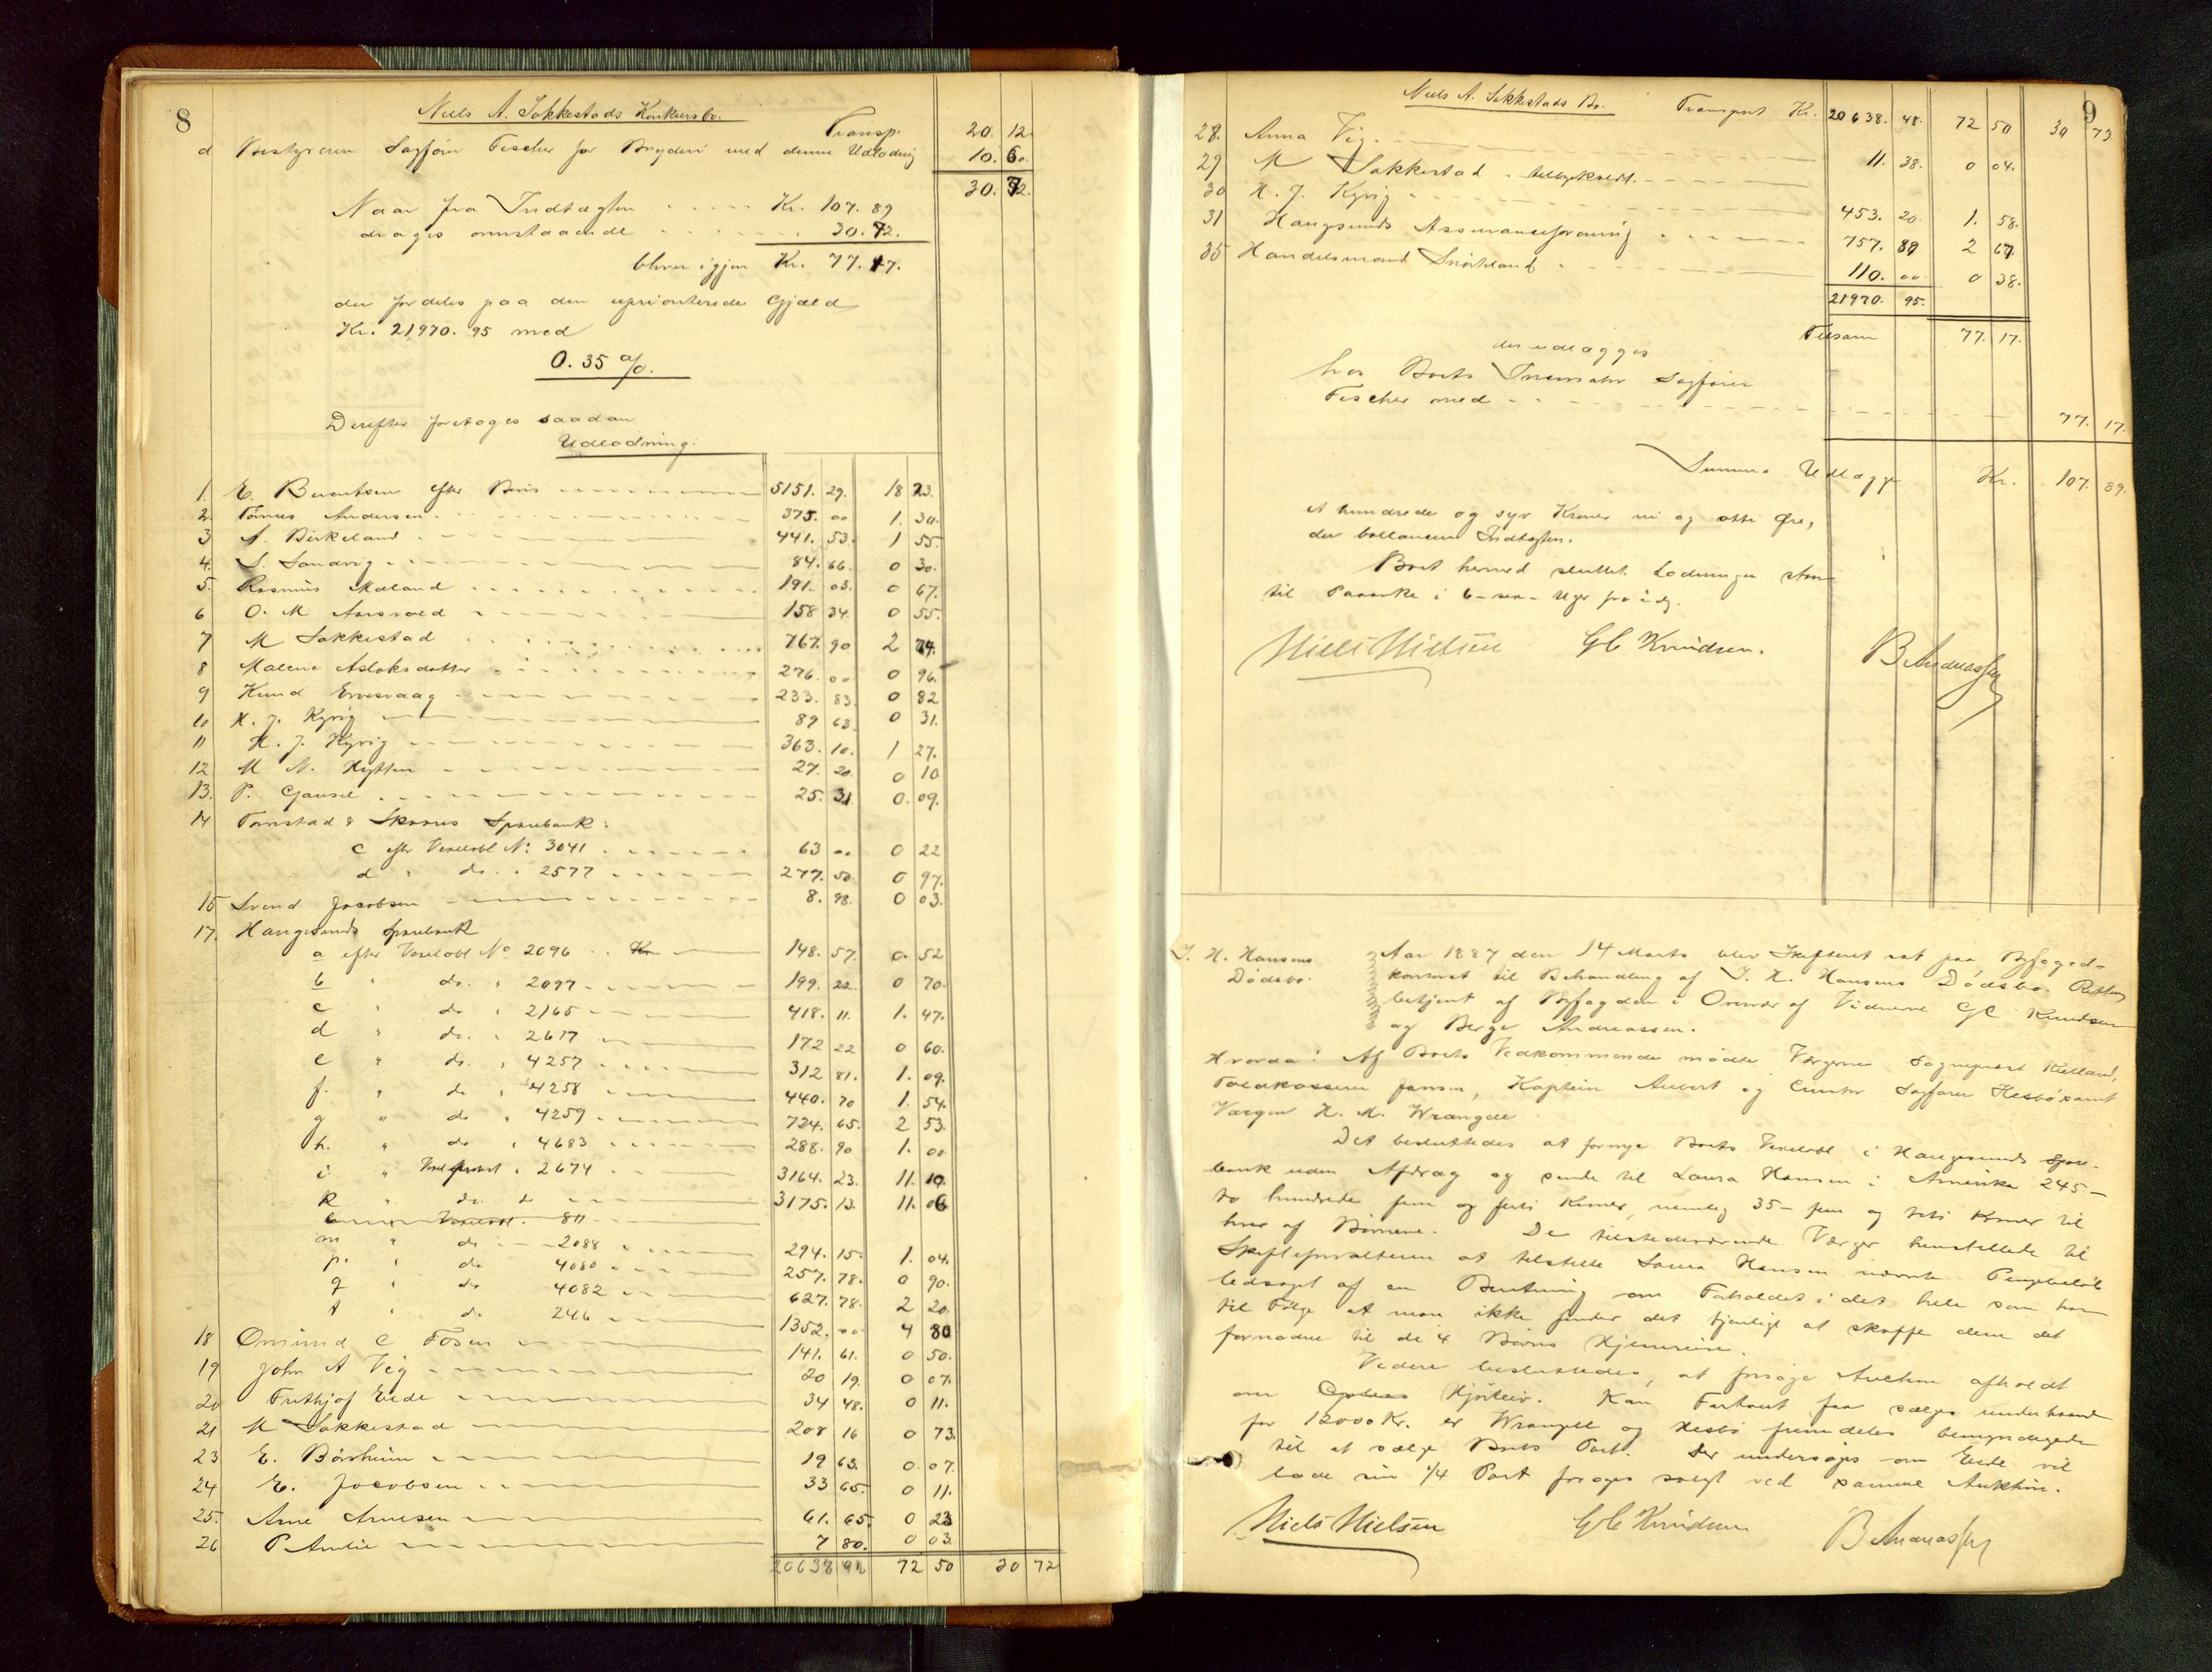 8
Niels A. Sakkestads Konkursbo.
Transp. 20. 12
d Bestyreren Sagfører Fischer for Bryderi med denne Udlodning 10. 60.
30. 72.
Naar fra Indtægten Kr. 107. 89
drages ovenstaaende 30. 72.
bliver igjen Kr. 77. 17.
der fordeles paa den uprioriterede Gjæld
Kr. 21,970. 95 med
0. 35 %.
Derefter foretages saadan
Udlodning:
1. E. Berentsen efter Bevis 5151. 29. 18 23.
2. Tønnes Andersen 375. 00 1. 30.
3 A. Birkeland 441. 53. 1 55
4. S. Sandvig 84. 66. 0 30.
5. Rasmus Maland 191. 03. 0 67.
6 O. M. 158 34. 0 55.
7 M Sakkestad 767. 90 2 74.
8 Malene Aslaksdatter 276. 00 0 96.
9 Knud 233. 83. 0 82
10 H. J. Kyvig 89 63 0 31.
11 H. J. Kyvig 363. 10. 1 27.
12 M N. Hytten 27. 20. 0 10
13. P. Gausel 25. 31 0. 09.
14 Tornstad & Skaares Sparebank:
c efter Vexelobl No: 3041 63 00 0 22
d " do. " 2577 277. 50 0 97.
15 Svend Jacobsen 8. 98. 0 03.
17. Haugesunds Sparebank
a efter Vexelobl No 2096 Kr. 148. 57. 0. 52
b " do. " 2097 199. 22. 0 70.
c " do " 2165 418. 11. 1. 47.
d " do. " 2617 172 22 0 60.
e " do. " 4257 312 81. 1. 09.
f. " do " 4258 440. 70 1. 54.
g " do " 4259 724. 65. 2 53.
h. " do " 4683 288. 90 1. 00
i " " 2674 3164. 23. 11. 10.
k " do. d 3175. 13. 11. 06
Vexelobl. 811
m " do 2088 294. 15. 1. 04.
p. " do 4080 257. 78. 0 90.
q " do 4082 627. 78. 2 20.
t " do 246 1352. 00 4 80
18 Omund C Fosen 141. 61. 0 50.
19 John A Vig 20 19. 0 07.
20 Frithjof Eide 34 48. 0 11.
21 M Sakkestad 208 16 0 73.
23 E. Børsheim 19 63. 0. 07.
24 E. Jacobsen 33 65. 0 11.
25. Arne Arnesen 61. 65. 0 23
26 P. Amlie 7 80. 0 03.
20638 48 72 50 30 72
9
Niels A. Sakkestads Bo. Transport Kr. 20638. 48. 72 50 30 73
28. Anna Vig 11. 38. 0 04.
29 M Sakkestad
30 H. J. Kyvig 453. 20 1. 58.
31 Haugesunds Assuranceforening 757. 89 2 67.
35 Handelsmand Snørteland 110. 00 0 38.
21970. 95.
Tilsam 77. 17.
der udlægges
hos Boets Incassator Sagfører
Fischer med 77. 17.
Summa Udlægg Kr. 107. 89.
et hundrede og syv Kroner ni og otti Øre,
der ballancerer Indtægten.
Boet hermed sluttet. Lodningen staar
til Paaanke i 6 - sex - Uger fra idag.
Niels Nielsen GC Knudsen. B Andreassen
J. H. Hansens
Dødsbo.
Aar 1887 den 14 Marts blev Skifteret sat paa Byfoged-
kontoret til Behandling af J. H. Hansens Dødsbo. Retten
betjent af Byfogden i Overvær af Vidnerne GC Knudsen
og Berge Andreassen.
Hvorda: Af Boets Vedkommende mødte Værgerne Sogneprest Kielland,
Toldkasserer Jansen, Kaptein Aubert og Curator Sagfører Hesbø samt
Værgen H. M. Wrangell
Det besluttedes at fornye Boets Vexelobl i Haugesunds Spare-
bank uden Afdrag og sende til Laura Hansen i Amerika 245 -
to hundrede fem og forti Kroner, nemlig 35 - fem og treti Kroner til
hver af Børnene. De tilstedeværende Værger henstillede til
Skifteforvalteren at tilstille Laura Hansen nævnte Pengebeløb
ledsaget af en Beretning om Forholdet i det hele som har
til Følge at man ikke finder det tjenligt at skaffe dem det
fornødne til de 4 Børns Hjemreise.
Videre besluttedes, at forsøge Auction afholdt
over Hjørleiv. Kan Fartøiet faa sælges underhaanden
for 12000 Kr. er Wrangell og Hesbø fremdeles bemyndigede
til at sælge Boets Part. Der undersøges om Eide vil
lade sin 1/4 Part forsøges solgt ved samme Auktion.
Niels Nielsen GC Knudsen B Andreassen